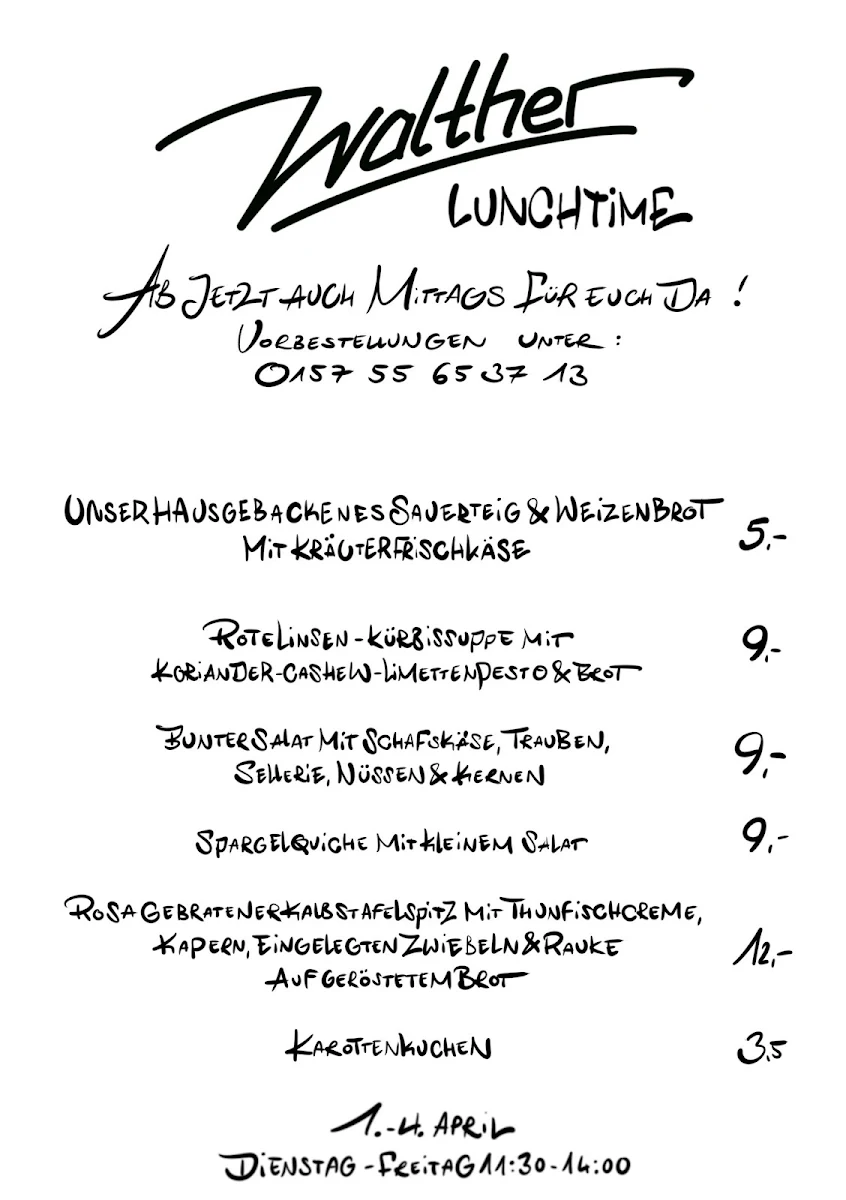 Walther
LUNCHTIME
AB JETZT AUCH MITTAGS FÜR EUCH DA !
VORBESTELLUNGEN UNTER :
0157 55 65 37 13
UNSER HAUSGEBACKENES SAUERTEIG & WEIZENBROT
MIT KRÄUTERFRISCHKÄSE
5,-
ROTE LINSEN-KÜRBISSUPPE MIT
KORIANDER-CASHEW-LIMETTENPESTO & BROT
9,-
BUNTER SALAT MIT SCHAFSKÄSE, TRAUBEN,
SELLERIE, NÜSSEN & KERNEN
9,-
SPARGELQUICHE MIT KLEINEM SALAT
9,-
ROSA GEBRATENER KALBSTAFELSPITZ MIT THUNFISCHCREME,
KAPERN, EINGELEGTEN ZWIEBELN & RAUKE
AUF GERÖSTETEM BROT
12,-
KAROTTENKUCHEN
3,5
1.-4. APRIL
DIENSTAG - FREITAG 11:30-14:00